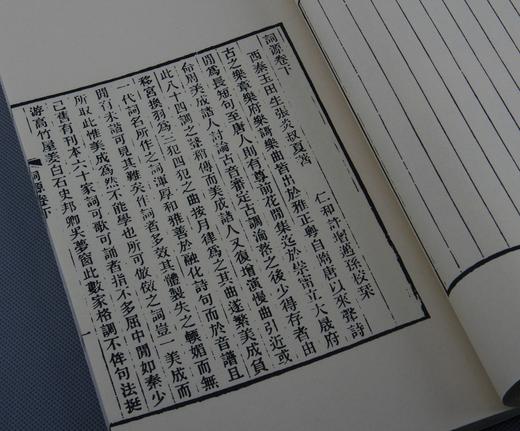 詞源卷下
西秦玉田生張炎叔夏著
仁和許增邁孫校栞
古之樂章樂府樂歌樂曲皆出於雅正粵自隋唐以來聲詩
閒為長短句至唐人則有尊前花閒集迄於崇甯立大晟府
命周美成諸人討論古音審定古調淪落之後少得存者由
此八十四調之聲稍傳而美成諸人又復增演慢曲引近或
移宮換羽為三犯四犯之曲按月律為之其曲遂繁美成負
一代詞名所作之詞渾厚和雅善於融化詩句而於音譜且
閒有未諧可見其難矣作詞者多效其體製失之輭媚而無
所取此惟美成為然不能學也所可倣傚之詞豈一美成而
已舊有刊本六十家詞可歌可誦者指不多屈中閒如秦少
游高竹屋姜白石史邦卿吳夢窗此數家格調不侔句法挺
詞源卷下
一